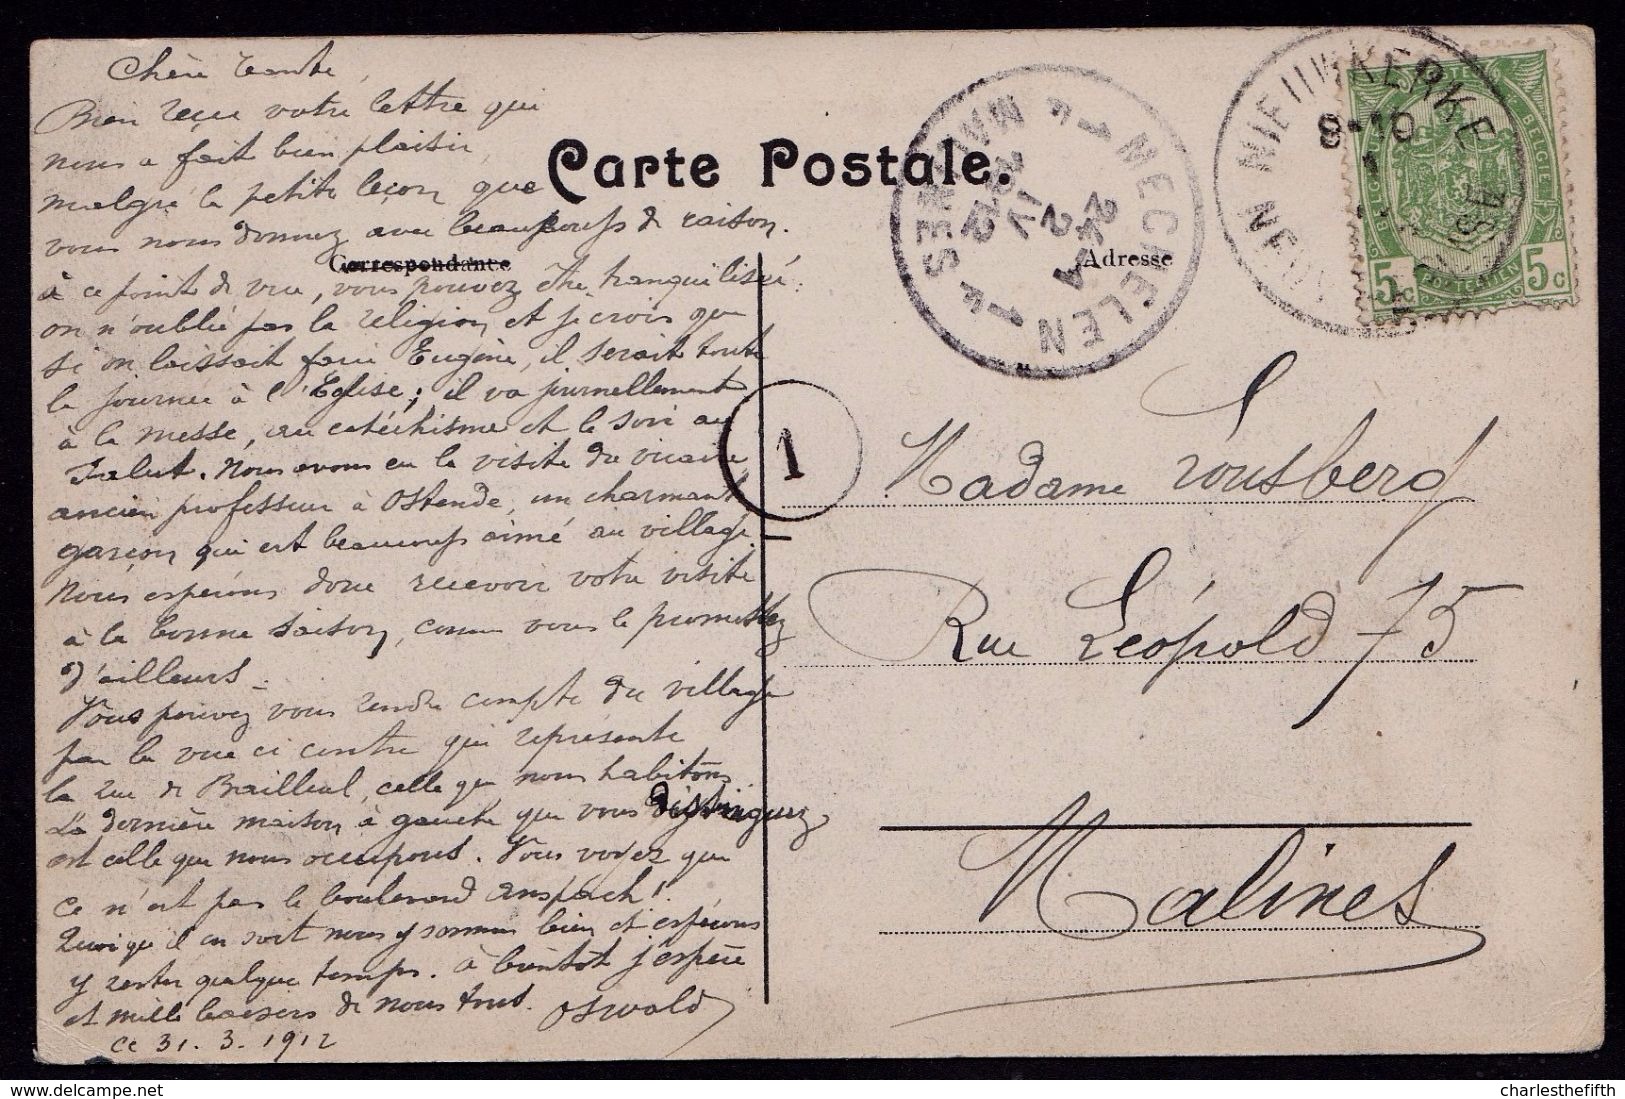 Chère Tante,
Bien reçu votre lettre qui
nous a fait bien plaisir,
malgré la petite leçon que
vous nous donnez avec beaucoup de raison.
à ce point de vue, vous pouvez être tranquilisée:
on n'oublie pas la religion et je crois que
si on laissait faire Eugène, il serait toute
la journée à l'Eglise; il va journellement
à la messe, au catéchisme et le soir au
Salut. Nous avons eu la visite du vicaire,
ancien professeur à Ostende, un charmant
garçon qui est beaucoup aimé au village.
Nous espérons donc recevoir votre visite
à la bonne saison, comme vous le promettez
d'ailleurs -
Vous pouvez vous rendre compte du village
par la vue ci contre qui représente
la rue de Bailleul, celle que nous habitons
La dernière maison à gauche que vous distinguez
est celle que nous occupons. Vous voyez que
ce n'est pas le boulevard anspach!
Quoiqu'il en soit nous y sommes bien et espérons
y rester quelque temps. à bientôt j'espère
et mille baisers de nous tous. Oswald
ce 31. 3. 1912
Carte Postale.
Correspondance
Adresse
MECHELEN 1
MALINES 1
NIEUWKERKE
8-19
BELGIE
5c 5c
1
Madame Lousberg
Rue Léopold 75
Malines
charlesthefifth